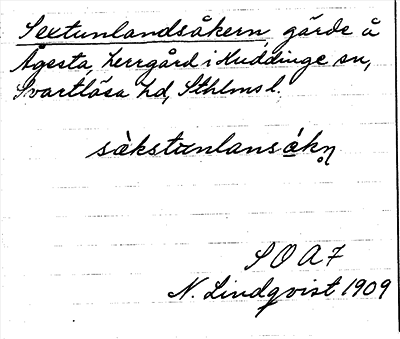 Sextunlandsåkern, gärde å
Ågesta, herrgård i Huddinge sn,
Svartlösa hd, Sthlms l.
sàkstunlansåkn̥
S O A F
N. Lindqvist 1909